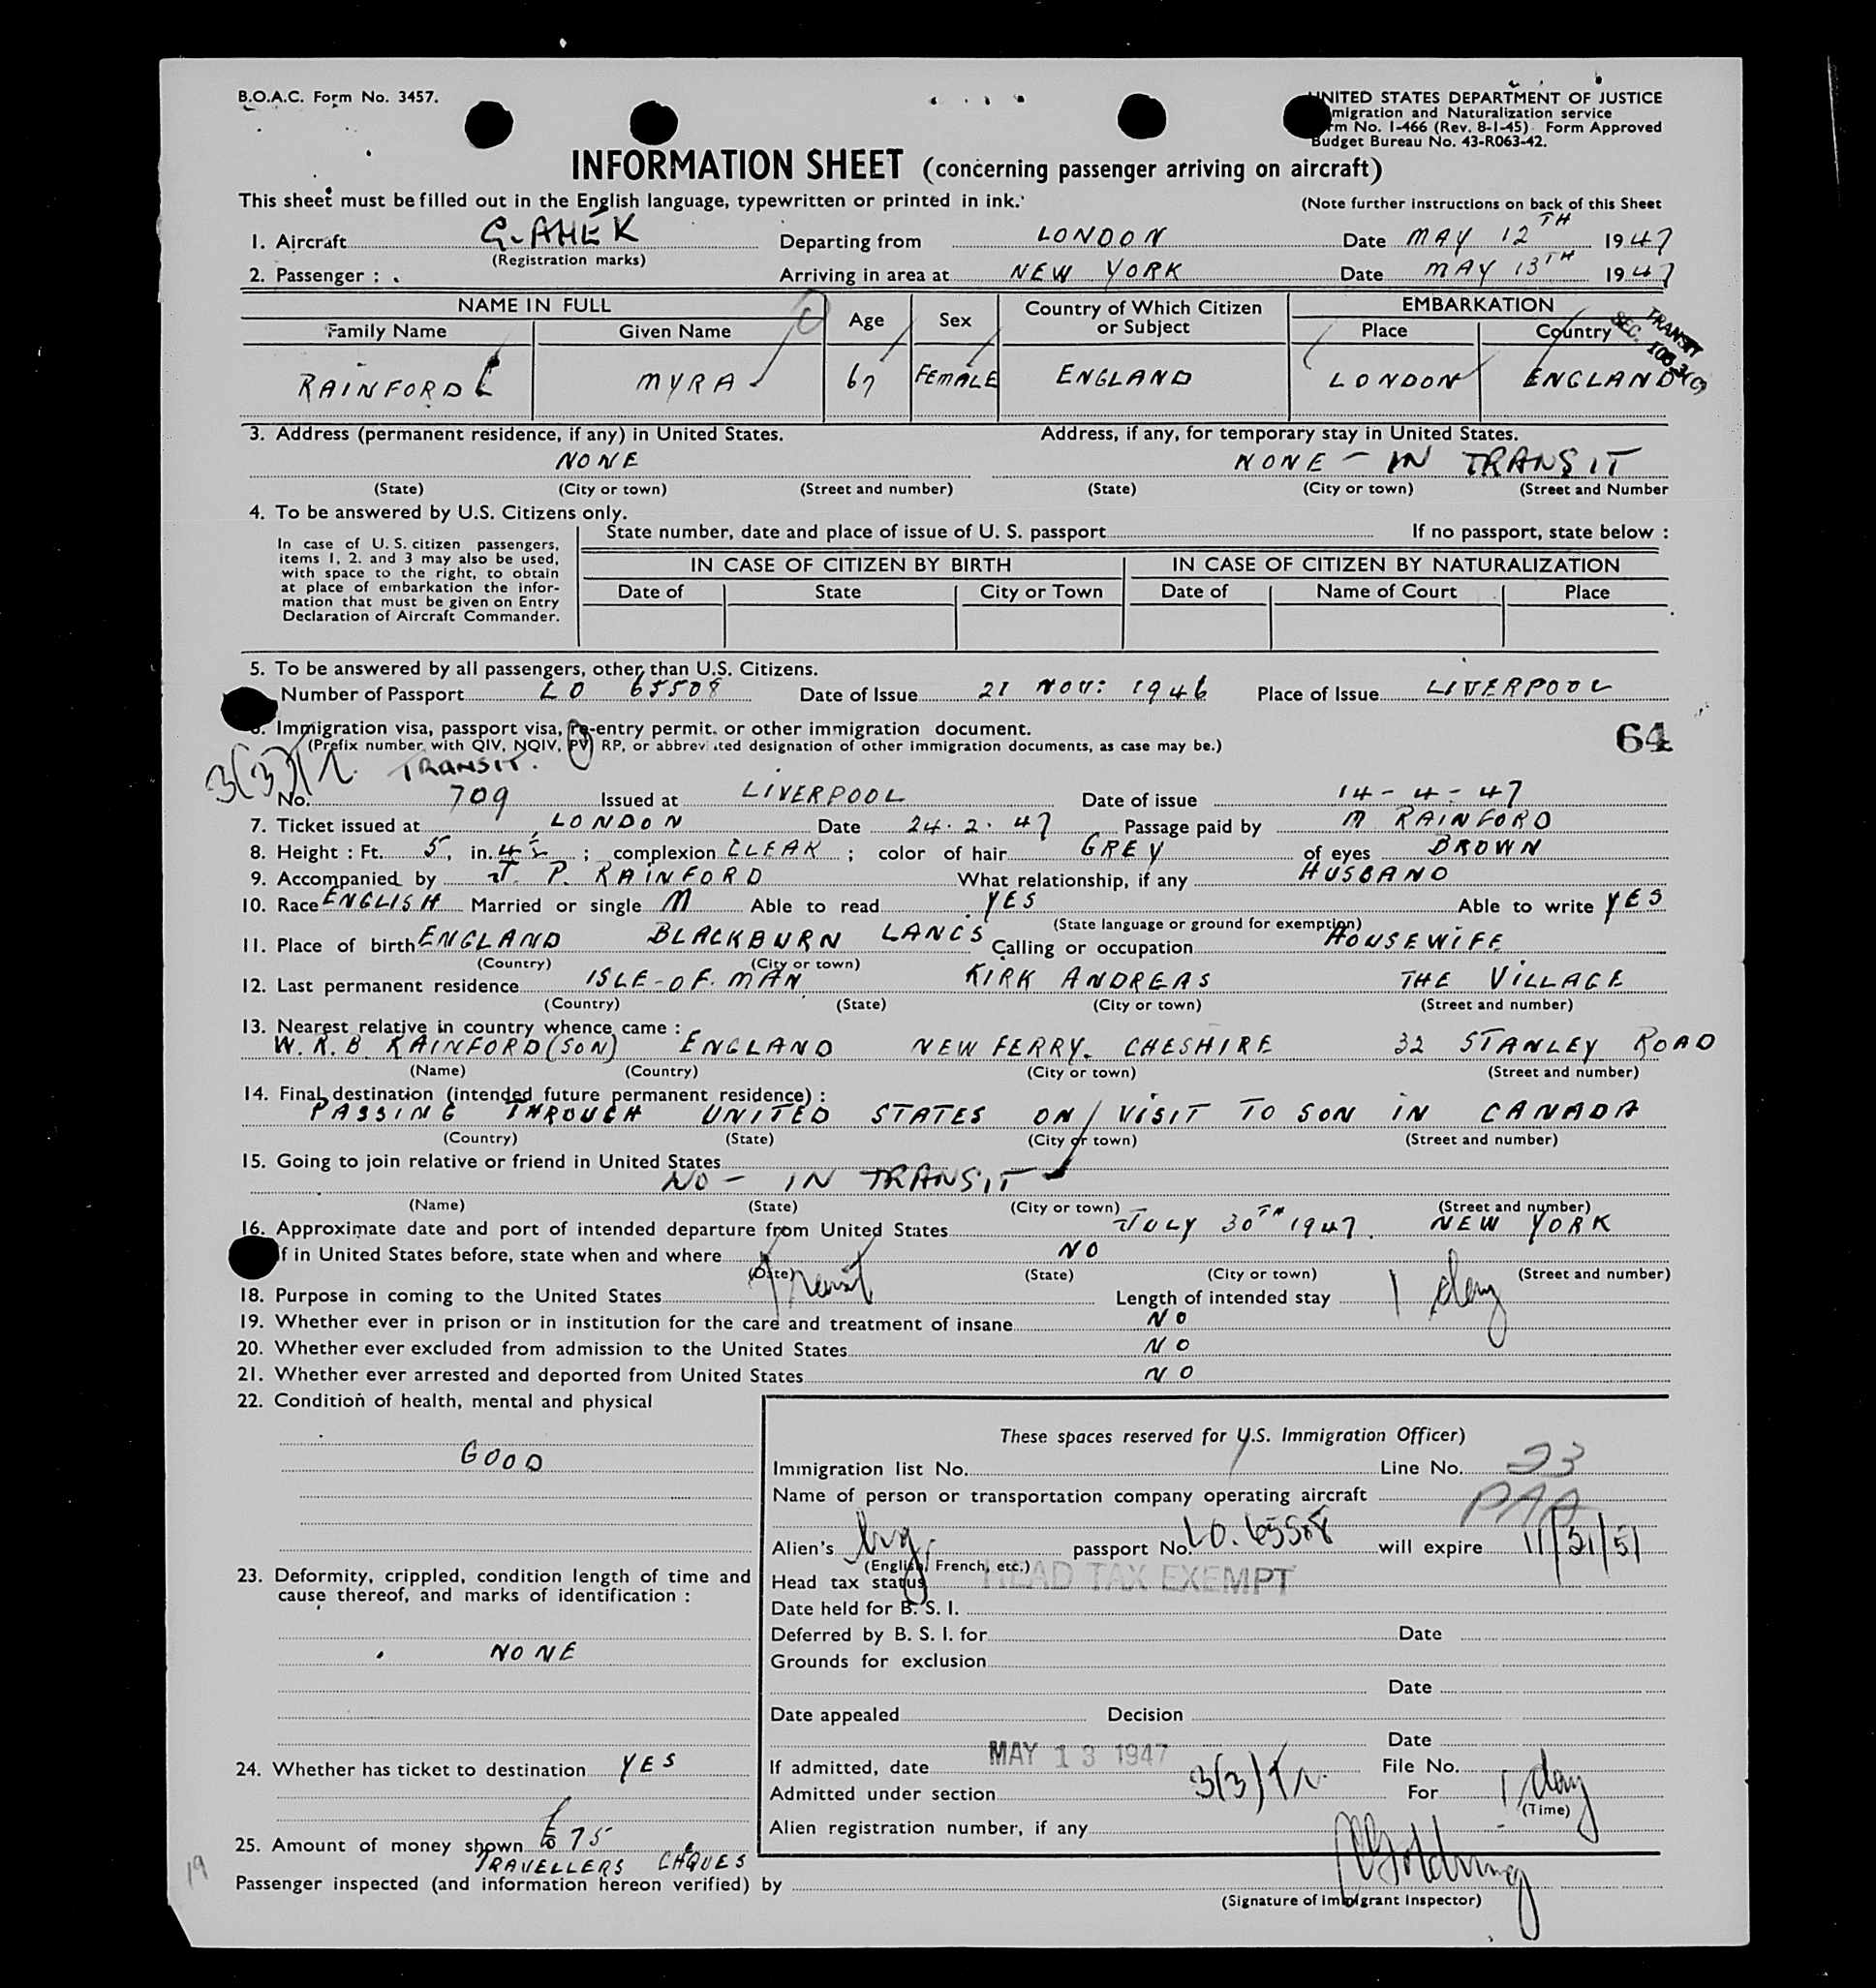 B.O.A.C. Form No. 3457.
UNITED STATES DEPARTMENT OF JUSTICE
migration and Naturalization service
rm No. I-466 (Rev. 8-1-45) Form Approved
Budget Bureau No. 43-R063-42.
INFORMATION SHEET (concerning passenger arriving on aircraft)
This sheet must be filled out in the English language, typewritten or printed in ink.
(Note further instructions on back of this Sheet
1. Aircraft G-AHEK Departing from LONDON Date MAY 12TH 1947
(Registration marks)
2. Passenger : Arriving in area at NEW YORK Date MAY 13TH 1947
NAME IN FULL Age Sex Country of Which Citizen or Subject EMBARKATION
Family Name Given Name Place Country
TRANSIT SEC.
RAINFORD MYRA 67 FEMALE ENGLAND LONDON ENGLAND
3. Address (permanent residence, if any) in United States. Address, if any, for temporary stay in United States.
NONE NONE - IN TRANSIT
(State) (City or town) (Street and number) (State) (City or town) (Street and Number
4. To be answered by U.S. Citizens only.
State number, date and place of issue of U. S. passport If no passport, state below :
In case of U. S. citizen passengers,
items 1, 2. and 3 may also be used,
with space to the right, to obtain
at place of embarkation the infor-
mation that must be given on Entry
Declaration of Aircraft Commander.
IN CASE OF CITIZEN BY BIRTH IN CASE OF CITIZEN BY NATURALIZATION
Date of State City or Town Date of Name of Court Place
5. To be answered by all passengers, other than U.S. Citizens.
Number of Passport LO 65508 Date of Issue 21 NOV: 1946 Place of Issue LIVERPOOL
6. Immigration visa, passport visa, re-entry permit. or other immigration document.
64
(Prefix number with QIV, NQIV, PV, RP, or abbreviated designation of other immigration documents, as case may be.)
3(3) TRANSIT.
No. 709 Issued at LIVERPOOL Date of issue 14-4-47
7. Ticket issued at LONDON Date 24.2.47 Passage paid by M RAINFORD
8. Height : Ft. 5, in. 4½ ; complexion CLEAR ; color of hair GREY of eyes BROWN
9. Accompanied by J. P. RAINFORD What relationship, if any HUSBAND
10. Race ENGLISH Married or single M Able to read YES Able to write YES
(State language or ground for exemption)
11. Place of birth ENGLAND BLACKBURN LANCS Calling or occupation HOUSEWIFE
(Country) (City or town)
12. Last permanent residence ISLE-OF-MAN KIRK ANDREAS THE VILLAGE
(Country) (State) (City or town) (Street and number)
13. Nearest relative in country whence came :
W. R. B. RAINFORD (SON) ENGLAND NEW FERRY. CHESHIRE 32 STANLEY ROAD
(Name) (Country) (City or town) (Street and number)
14. Final destination (intended future permanent residence) :
PASSING THROUGH UNITED STATES ON VISIT TO SON IN CANADA
(Country) (State) (City or town) (Street and number)
15. Going to join relative or friend in United States
NO - IN TRANSIT
(Name) (State) (City or town) (Street and number)
16. Approximate date and port of intended departure from United States JULY 30TH 1947. NEW YORK
If in United States before, state when and where NO
(Date) (State) (City or town) (Street and number)
18. Purpose in coming to the United States Transit Length of intended stay 1 day
19. Whether ever in prison or in institution for the care and treatment of insane NO
20. Whether ever excluded from admission to the United States NO
21. Whether ever arrested and deported from United States NO
22. Condition of health, mental and physical
GOOD
These spaces reserved for U.S. Immigration Officer)
Immigration list No. Line No. 23
Name of person or transportation company operating aircraft
PAA
Alien's passport No. LO. 65508 will expire 11/21/51
(English, French, etc.)
23. Deformity, crippled, condition length of time and
cause thereof, and marks of identification :
NONE
Head tax status HEAD TAX EXEMPT
Date held for B. S. I.
Deferred by B. S. I. for Date
Grounds for exclusion
Date
Date appealed Decision
Date
24. Whether has ticket to destination YES
If admitted, date MAY 13 1947 File No.
Admitted under section 3(3) Tr. For 1 day
(Time)
Alien registration number, if any
25. Amount of money shown £75
TRAVELLERS CHQUES
19
Passenger inspected (and information hereon verified) by
(Signature of Immigrant Inspector)